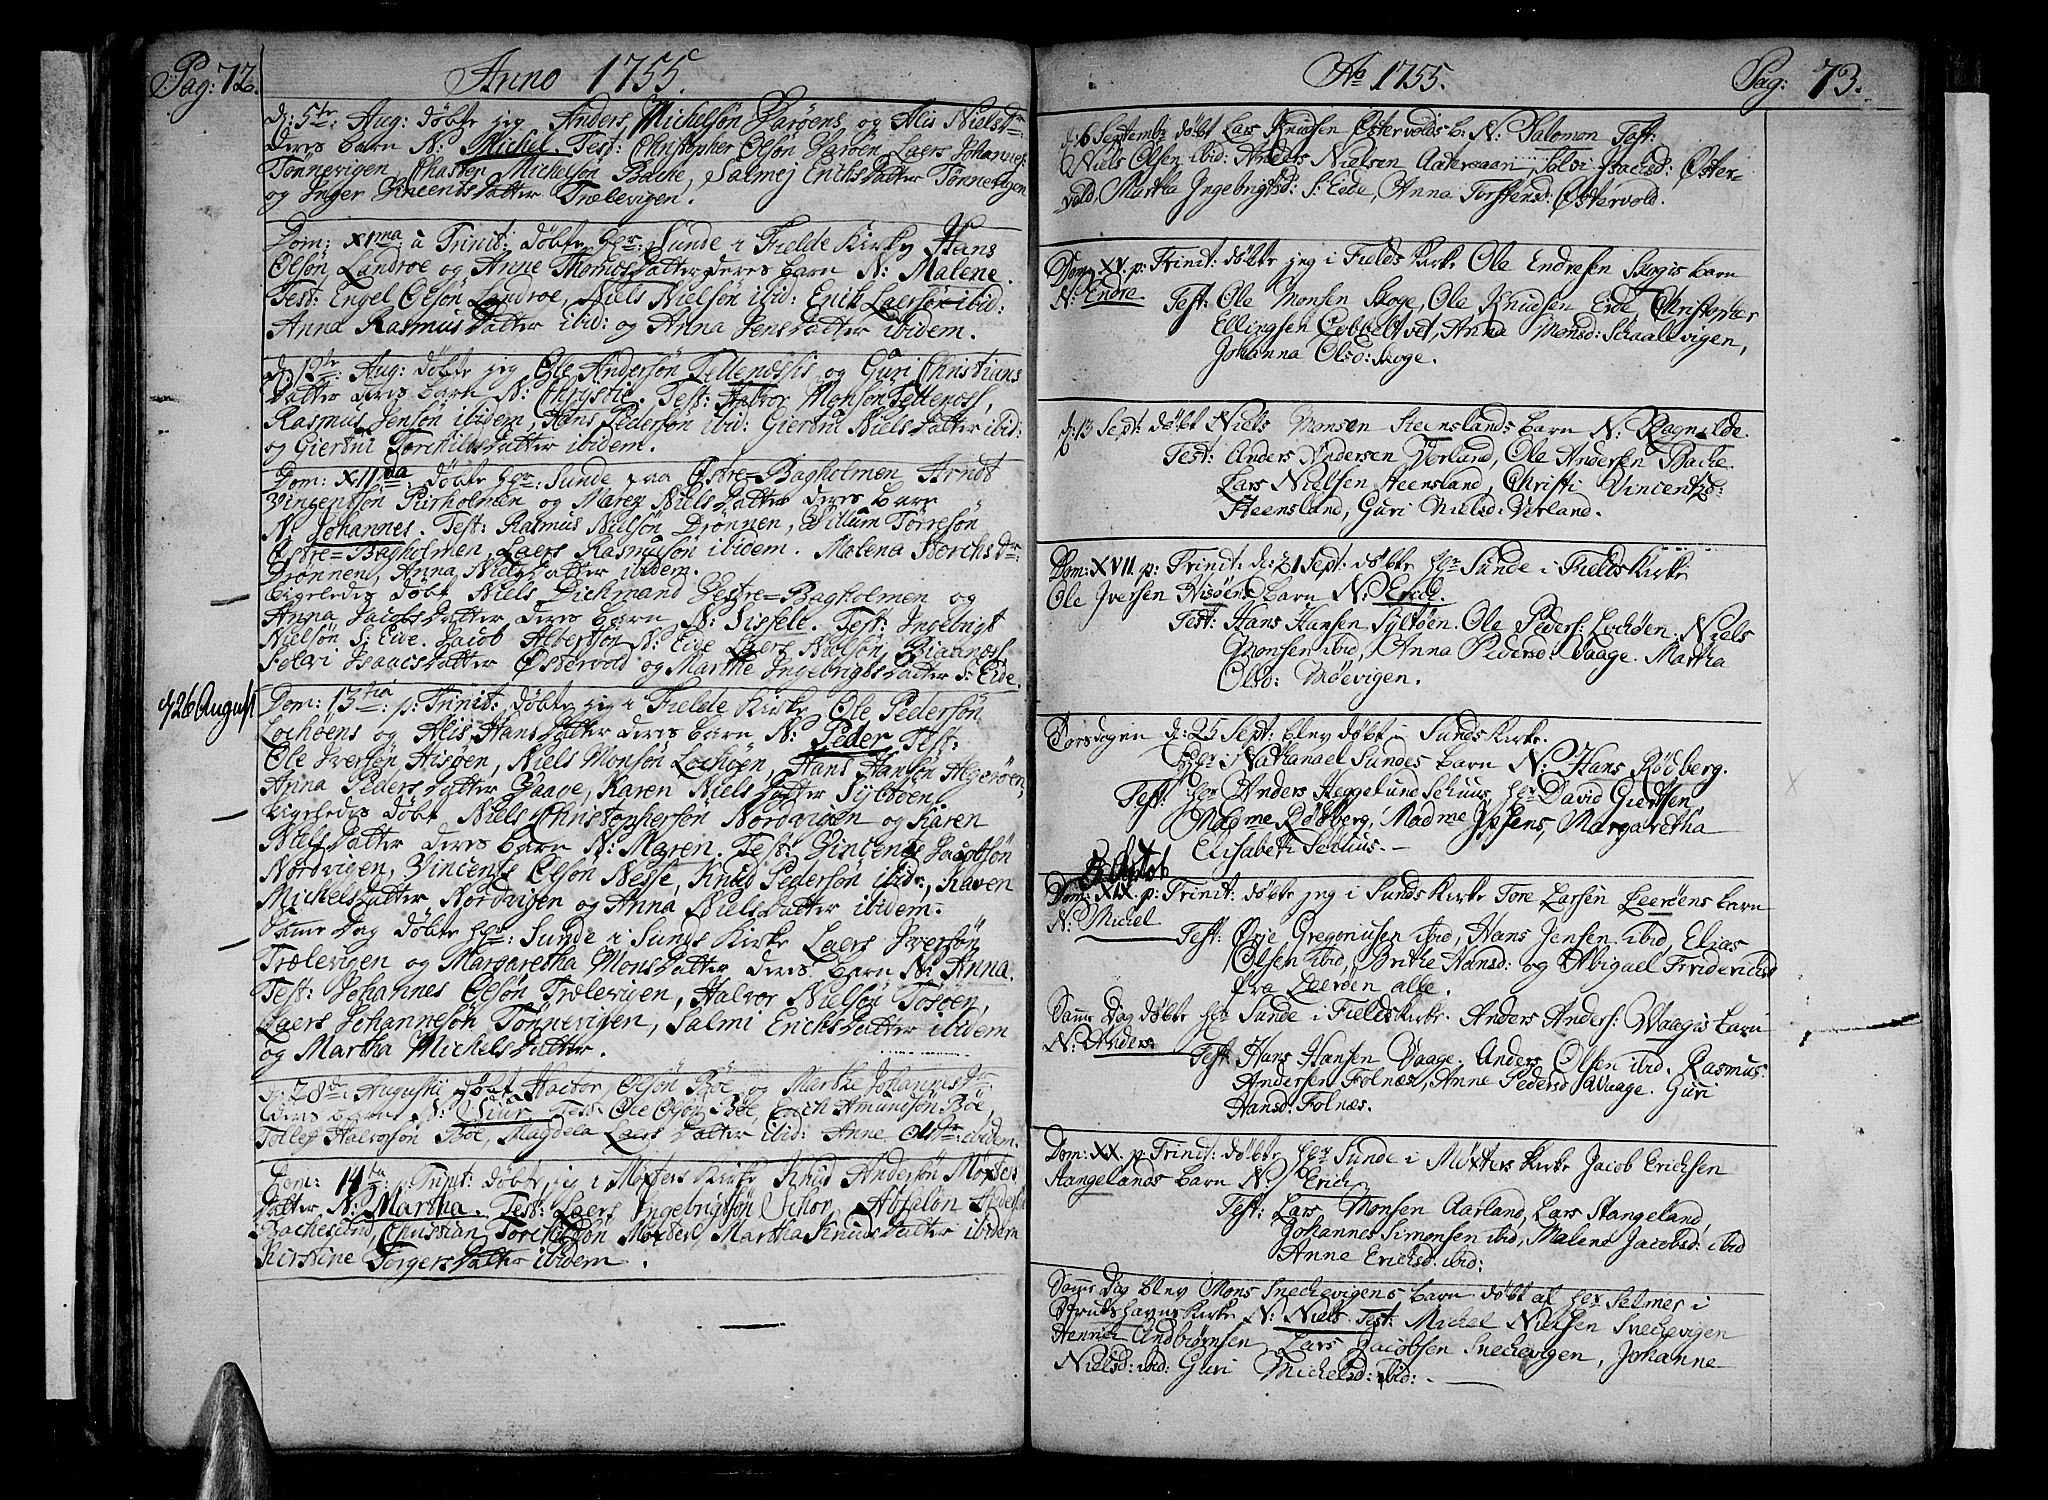 Pag: 72.
Anno 1755.
d: 5te: Aug: døbte jeg Anders Michelsøn Barøens og Alis Nielsdr
deres barn N: Michel. Test: Christopher Olsøn Barøen, Laers Johannes:
Tønnevigen Chasten Michelsøn Backe, Salmej Erichsdatter Tønnevigen
og Inger Vincentsdatter Trælevigen.
Dom: XIma: a Trinit: døbte Hr: Sunde i Fielde Kirke Hans
Olsøn Landroe og Anne Thomesdatter deres barn N: Malene.
Test: Engel Olsøn Landroe, Niels Nielsøn ibid: Erich Laersøn ibid:
Anna Rasmusdatter ibid: og Anna Jensdatter ibidem.
d: 13te Aug: døbte jeg Ole Andersøn Tellenessis og Guri Christians
datter deres barn N: Chrystie. Test: Halvor Monsøn Tellenes,
Rasmus Jensøn ibidem, Hans Pedersøn ibid: Giertrui Nielsdatter ibid:
og Giertrui Torchildsdatter ibidem.
Dom: XIIma: døbte Hr: Sunde paa Østre=Bagholmen Arndt
Vingentsøn Pirholmen og Maren Nielsdatter deres barn
N: Johannes. Test: Rasmus Nielsøn Drønnen, Willum Torresøn
Østre=Bagholmen, Laers Rasmusøn ibidem. Malena Storchsdr:
Drønnen, Anna Nielsdatter ibidem.
Ligeledes døbt Niels Dichmand Vestre=Bagholmen og
Anna Jacobsdatter deres barn N: Sissele. Test: Ingebrigt
Nielsøn S: Eide. Jacob Albertsøn N: Eide Laers Nielsøn, Biaanes,
Selvi Isaacsdatter Østervold og Marthe Ingebrigtsdatter S: Eide.
d 26 August
Dom: 13tia: p: Trinit: døbte jeg i Fielde Kirke Ole Pedersøn
Lochøens og Alis Hansdatter deres barn N: Peder. Test:
Ole Iversøn Hisøen, Niels Monsøn Lochøen, Hans Hansøn Algerøen,
Anna Pedersdatter Vaage, Karen Nielsdatter Syltøen.
Ligeledes døbt Niels Christophersøn Nordvigen og Karen
Nielsdatter deres barn N: Maren. Test: Vincents Jacobsøn
Nordvigen, Vincents Olsøn Nesse, Knud Pedersøn ibid:, Karen
Michelsdatter Nordvigen og Anna Nielsdatter ibidem.
Samme Dag døbte Hr: Sunde i Sunds Kirke Laers Iversøn
Trælevigen og Margaretha Monsdatter deres barn N: Anna.
Test: Johannes Olsøn Trælevigen, Halvor Nielsøn Tosøen,
Laers Johannesøn Tønnevigen, Salmi Erichsdatter ibidem
og Martha Michelsdatter.
d: 28de: Augustii døbt Hactor Olsøn Bøe og Marthe Johannisdr
deres barn N: Siur Test: Ole Olsøn Bøe, Erich Amundsøn Bøe,
Tollef Halvorsøn Bøe, Magdela Laersdatter ibid: Anne Olsdr: ibidem.
Dom: 14ta: p: Trinit: døbte jeg i Møxters Kirke Knud Andersøn Møxters
datter N: Martha. Test: Laers Ingebrigtsøn Schor, Absalon Anders:
Bachesund, Christian Torchildsøn Møxter, Martha Knudsdatter ibidem
Kirstine Torgersdatter ibidem.
Ao 1755.
Pag: 73.
d: 6 Septembr døbt Lars Knudsen Østervolds b: N: Salomon Test:
Niels Olsen ibid: Anders Nielsen Aatersaan Salvi Isacsd: Øster-
vold, Martha Ingebrigtsd: S: Eide, Anna Torstensd: Østervold.
Dom: XV. p: Trinit: døbte jeg i Fields Kirke Ole Endresen Skogis barn
N: Endre. Test: Ole Monsen Skoge, Ole Knudsen Eide, Christopher
Ellingsen Cobbeltvet, Anna Monsd: Schaallvigen,
Johanna Olsd: Skoge.
d: 13 Sept: døbt Niels Monsen Steenslands barn N: Ragnilde.
Test: Anders Andersen Værland, Ole Andersen Backe
Lars Nielsen Steensland, Christi Vincentsd:
Steensland, Guri Nielsd: Verland.
Dom: XVII. p: Trinit: d: 21 Sept: døbte Hr Sunde i Fields Kirke
Ole Iversen Hisøens barn N: Erich.
Test: Hans Hansen Syltøen. Ole Peders: Lochøen. Niels
Monsen ibid, Anna Pedersd: Vaage. Martha
Olsd: Møevigen.
Torsdagen d: 25 Sept: blev døbt i Sunds Kirke.
Hr: Nathanael Sundes barn N: Hans Rødberg.
Test: Hr Anders Heggelund Schius, Hr David Giertsen,
Madme Rødberg, Madme Ipsens, Margaretha
Elisabeth Schius.
5 Octob
Dom: XIX. p: Trinit: døbte jeg i Sunds Kirke Tore Larsen Leerøens barn
N: Michel Test: Ørje Gregoriusen ibid, Hans Jensen ibid, Elias
Olsen ibid, Brithe Hansd: og Abigael Friderichsd
fra Leerøen alle.
Samme Dag døbte Hr Sunde i Fields Kirke. Anders Anders: Waagis barn
N: Anders. Test: Hans Hansen Vaage. Anders Olsen ibid. Rasmus
Andersen Folnæs, Anne Pedersd Waage. Guri
Hansd: Folnæs.
Dom: XX. p: Trinit: døbte Hr Sunde i Møxters Kirke Jacob Erichsen
Stangelands barn N: Erich
Test: Lars Monsen Aarland, Lars Stangeland,
Johannes Simonsen ibid, Malene Jacobsd: ibid
Anne Erichsd: ibid:
Samme Dag blev Mons Snechevigens barn døbt af Hr Selmer i
Strudshavns Kirke N: Niels. Test: Michel Nielsen Snechevigen
Henrich Andbiørnsen, Lars Jacobsen Snechevigen, Johanne
Nielsd: ibid: Guri Michelsd: ibid: